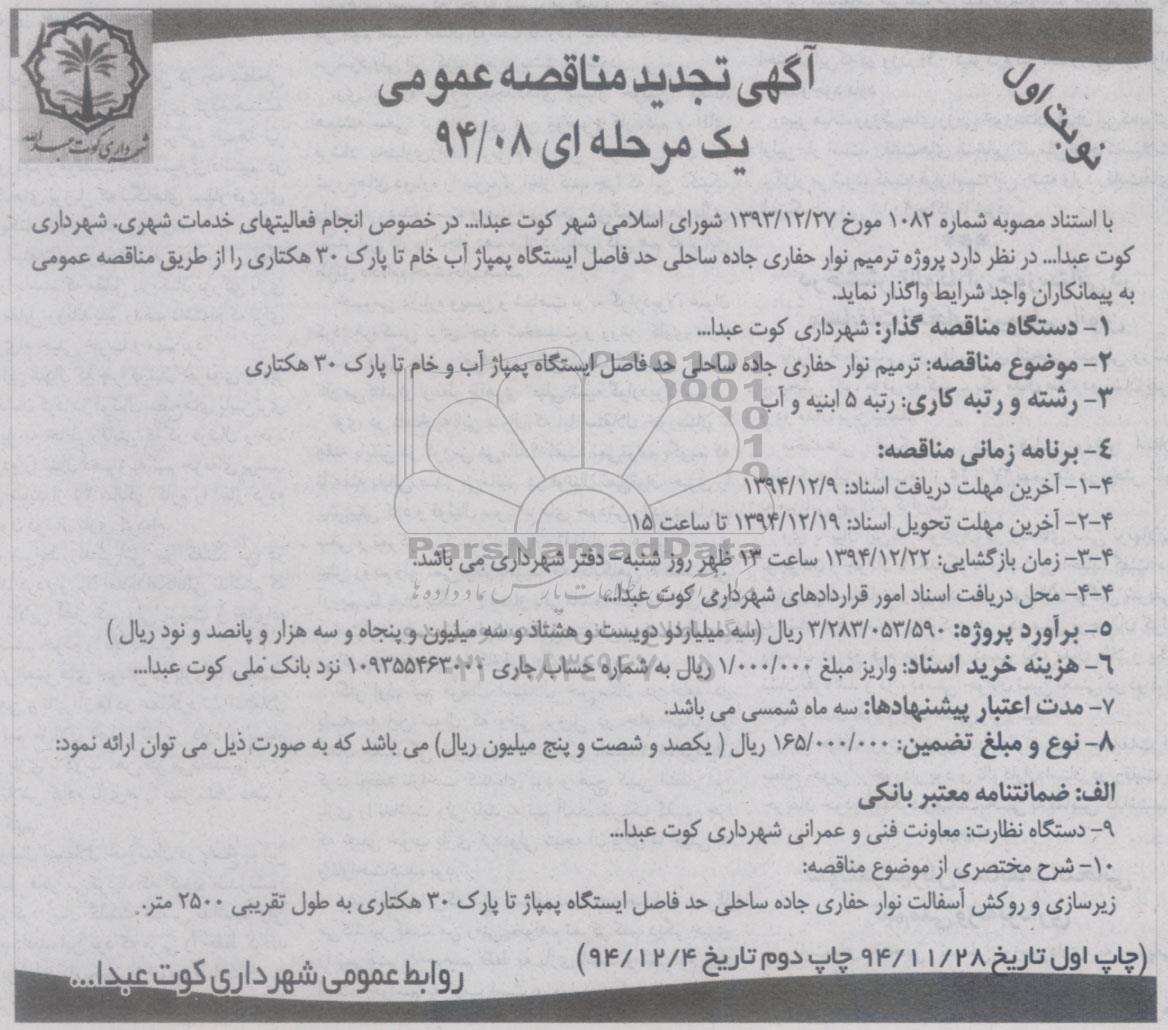 شهرداری کوت عبدالله
نوبت اول
آگهی تجدید مناقصه عمومی
یک مرحله ای ۹۴/۰۸
با استناد مصوبه شماره ۱۰۸۲ مورخ ۱۳۹۳/۱۲/۲۷ شورای اسلامی شهر کوت عبدا... در خصوص انجام فعالیتهای خدمات شهری، شهرداری
کوت عبدا... در نظر دارد پروژه ترمیم نوار حفاری جاده ساحلی حد فاصل ایستگاه پمپاژ آب خام تا پارک ۳۰ هکتاری را از طریق مناقصه عمومی
به پیمانکاران واجد شرایط واگذار نماید.
۱- دستگاه مناقصه گذار: شهرداری کوت عبدا...
۲- موضوع مناقصه: ترمیم نوار حفاری جاده ساحلی حد فاصل ایستگاه پمپاژ آب و خام تا پارک ۳۰ هکتاری
۳- رشته و رتبه کاری: رتبه ۵ ابنیه و آب
۴- برنامه زمانی مناقصه:
۴-۱- آخرین مهلت دریافت اسناد: ۱۳۹۴/۱۲/۹
۴-۲- آخرین مهلت تحویل اسناد: ۱۳۹۴/۱۲/۱۹ تا ساعت ۱۵
۴-۳- زمان بازگشایی: ۱۳۹۴/۱۲/۲۲ ساعت ۱۳ ظهر روز شنبه- دفتر شهرداری می باشد.
ParsNamadData
۴-۴- محل دریافت اسناد امور قراردادهای شهرداری کوت عبدا...
۵- برآورد پروژه: ۳/۲۸۳/۰۵۳/۵۹۰ ریال (سه میلیاردو دویست و هشتاد و سه میلیون و پنجاه و سه هزار و پانصد و نود ریال )
۶- هزینه خرید اسناد: واریز مبلغ ۱/۰۰۰/۰۰۰ ریال به شماره حساب جاری ۱۰۹۳۵۵۴۶۳۰۰۱ نزد بانک ملی کوت عبدا...
۷- مدت اعتبار پیشنهادها: سه ماه شمسی می باشد.
۸- نوع و مبلغ تضمین: ۱۶۵/۰۰۰/۰۰۰ ریال ( یکصد و شصت و پنج میلیون ریال) می باشد که به صورت ذیل می توان ارائه نمود:
الف: ضمانتنامه معتبر بانکی
۹- دستگاه نظارت: معاونت فنی و عمرانی شهرداری کوت عبدا...
۱۰- شرح مختصری از موضوع مناقصه:
زیرسازی و روکش آسفالت نوار حفاری جاده ساحلی حد فاصل ایستگاه پمپاژ تا پارک ۳۰ هکتاری به طول تقریبی ۲۵۰۰ متر.
(چاپ اول تاریخ ۹۴/۱۱/۲۸ چاپ دوم تاریخ ۹۴/۱۲/۴)
روابط عمومی شهرداری کوت عبدا...